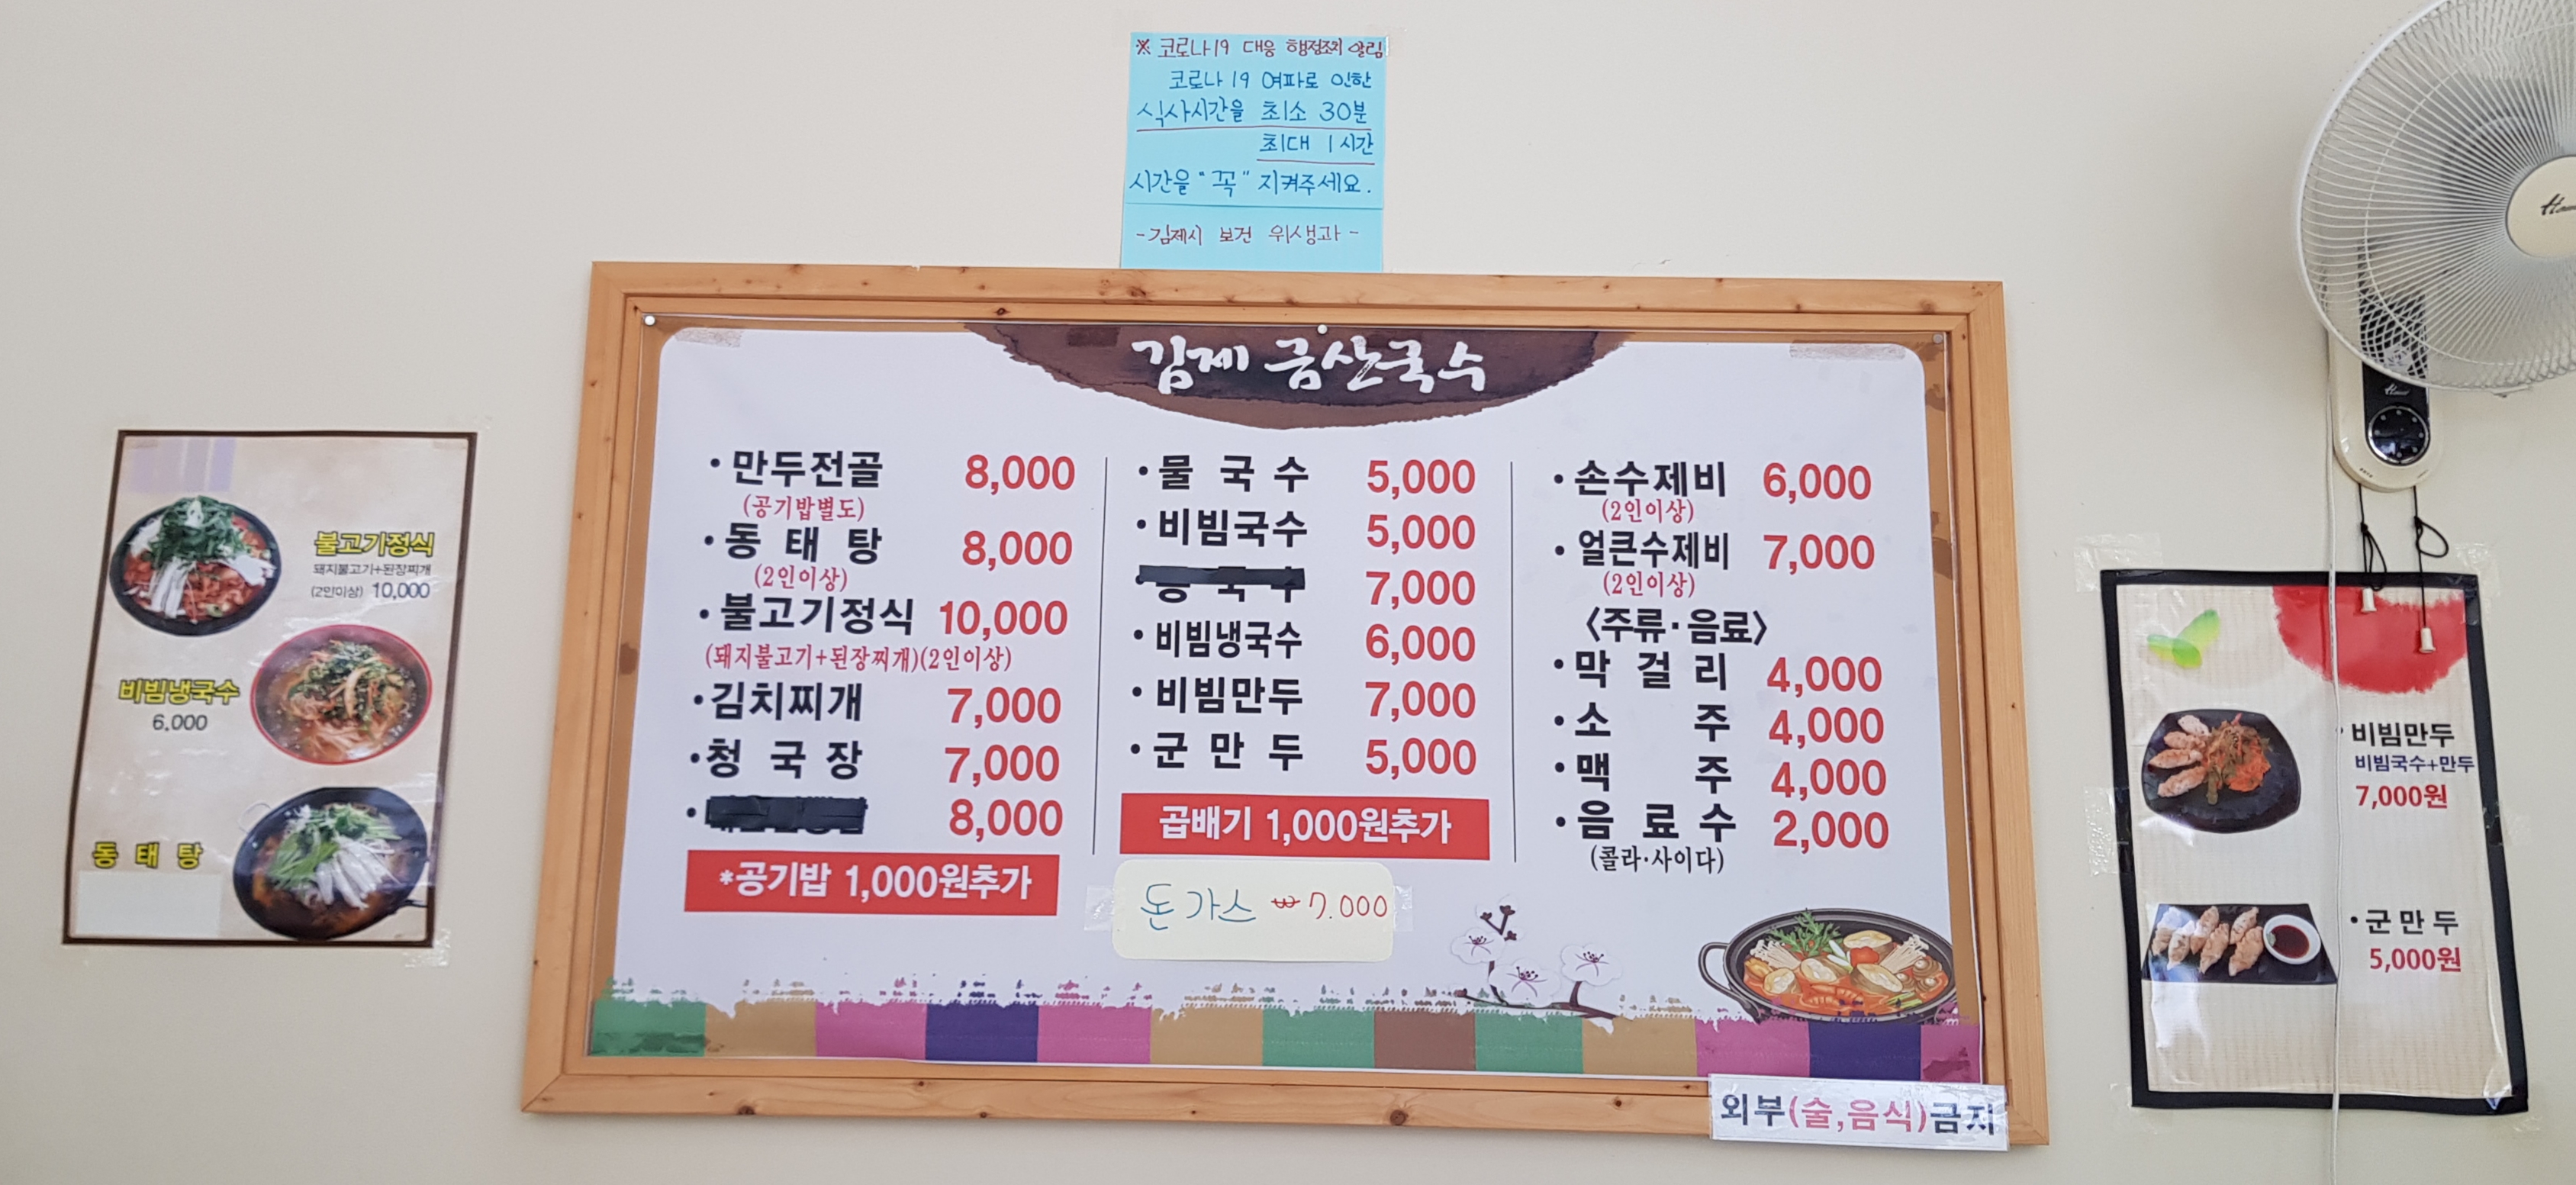 ※ 코로나19 대응 행정조치 알림
코로나 19 여파로 인한
식사시간을 최소 30분
최대 1시간
시간을 "꼭" 지켜주세요.
-김제시 보건 위생과-
김제 금산국수
·만두전골 8,000
(공기밥별도)
·동태탕 8,000
(2인이상)
·불고기정식 10,000
(돼지불고기+된장찌개)(2인이상)
·김치찌개 7,000
·청국장 7,000
· 8,000
*공기밥 1,000원추가
·물국수 5,000
·비빔국수 5,000
· 7,000
·비빔냉국수 6,000
·비빔만두 7,000
·군만두 5,000
곱배기 1,000원추가
돈가스 ₩7.000
·손수제비 6,000
(2인이상)
·얼큰수제비 7,000
(2인이상)
〈주류·음료〉
·막걸리 4,000
·소주 4,000
·맥주 4,000
·음료수 2,000
(콜라·사이다)
외부(술,음식)금지
불고기정식
돼지불고기+된장찌개
(2인이상) 10,000
비빔냉국수
6,000
동태탕
·비빔만두
비빔국수+만두
7,000원
·군만두
5,000원